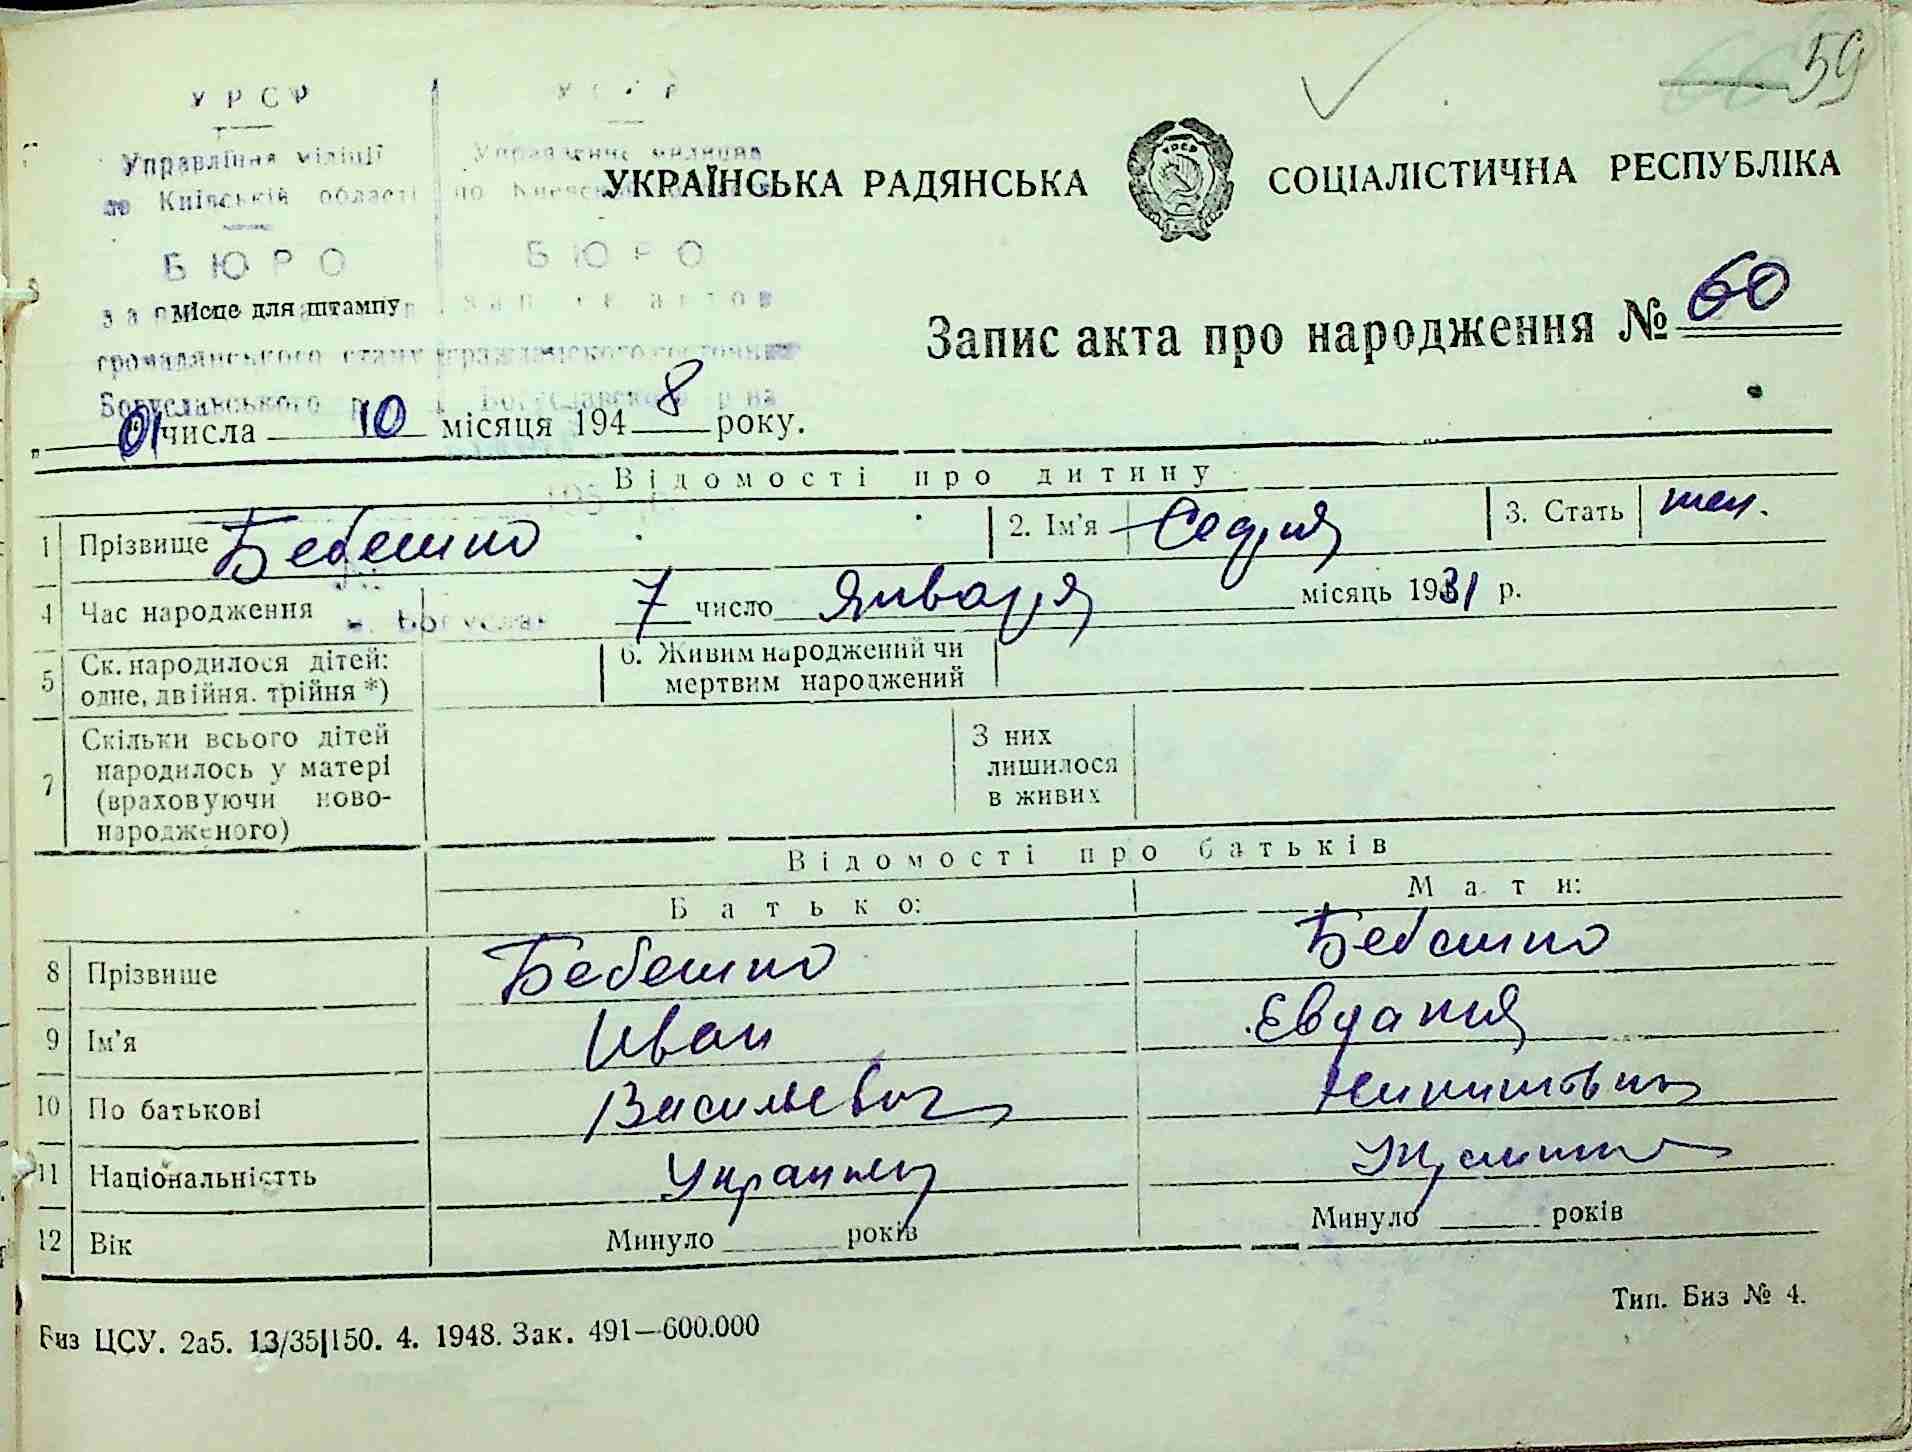 59
УРСР
Управління міліції
по Київській області
БЮРО
громадянського стану
Богуславського р
УКРАЇНСЬКА РАДЯНСЬКА СОЦІАЛІСТИЧНА РЕСПУБЛІКА
Місце для штампу
Запис акта про народження № 60
„01 числа 10 місяця 1948 року.
Відомості про дитину
1 Прізвище Бебешко 2. Ім'я София 3. Стать жен.
4 Час народження 7 число Января місяць 1931 р.
м. Богуслав
5 Ск. народилося дітей: одне, двійня. трійня *) 6. Живим народжений чи мертвим народжений
7 Скільки всього дітей народилось у матері (враховуючи ново-народженого) З них лишилося в живих
Відомості про батьків
Батько: Мати:
8 Прізвище Бебешко Бебешко
9 Ім'я Иван Евдакия
10 По батькові Васильевич Никитовна
11 Національністть Украинец Украинка
12 Вік Минуло років Минуло років
Биз ЦСУ. 2а5. 13/35|150. 4. 1948. Зак. 491—600.000
Тип. Биз № 4.